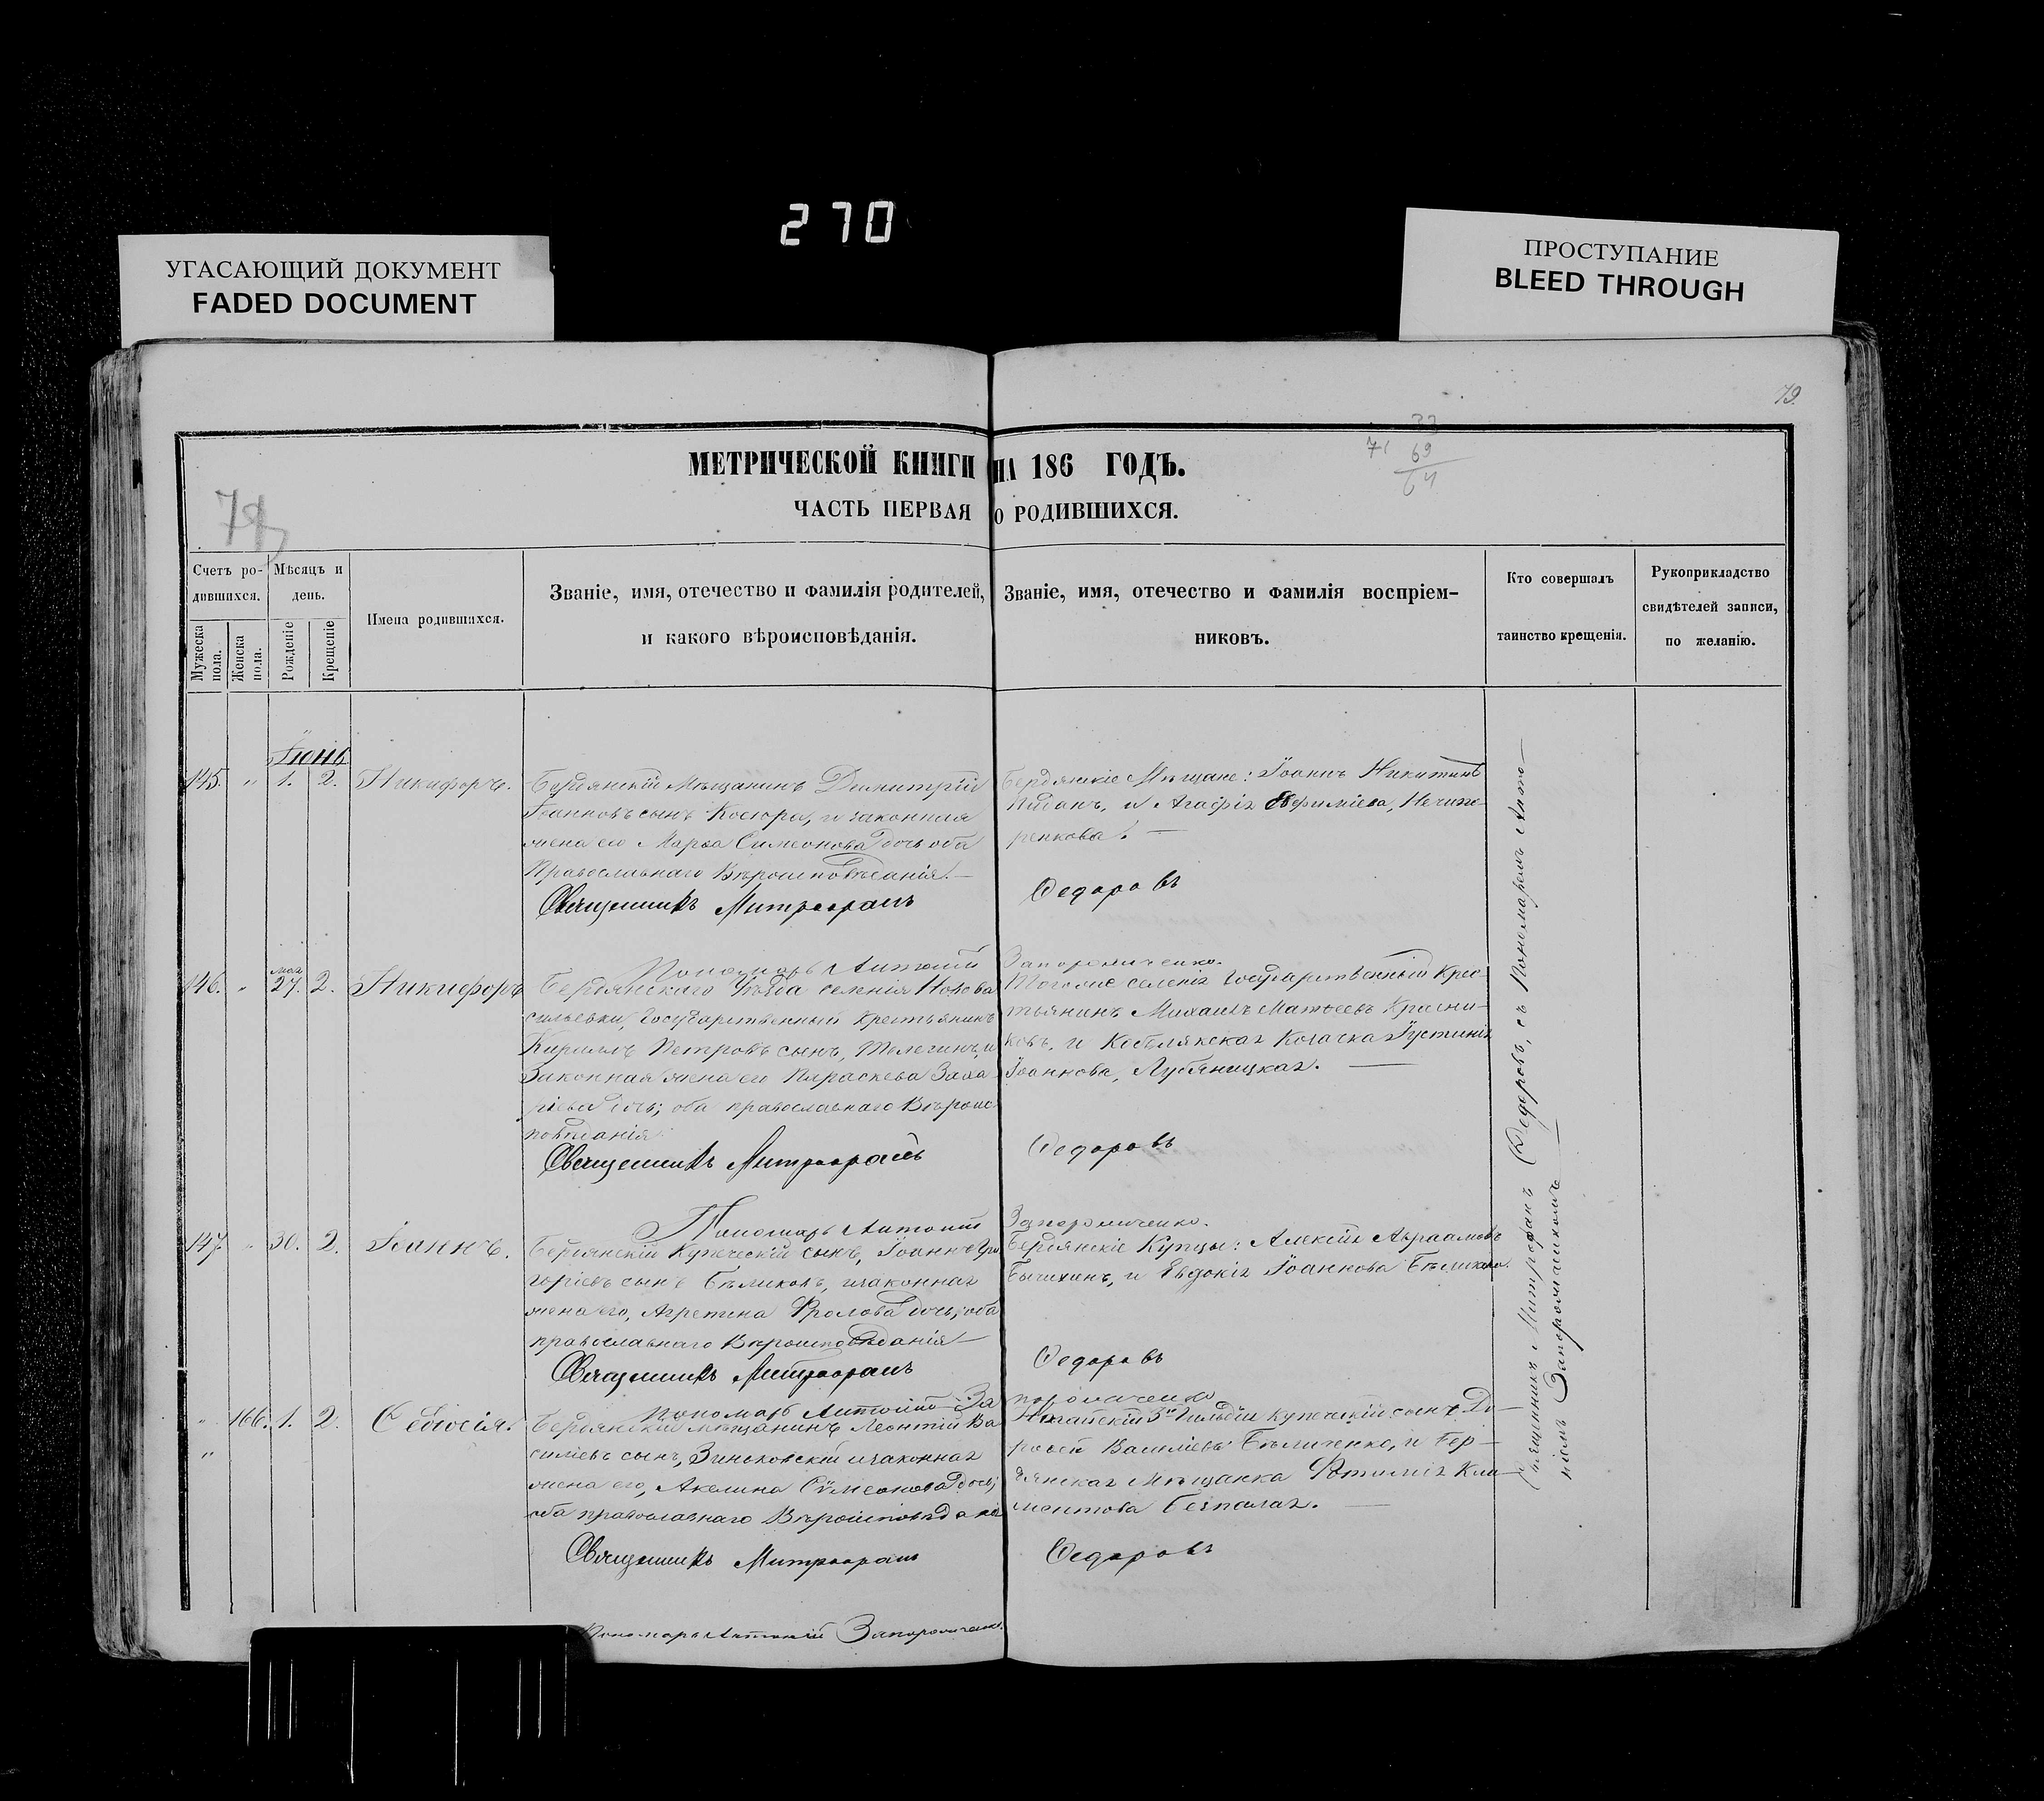 270
УГАСАЮЩИЙ ДОКУМЕНТ
FADED DOCUMENT
ПРОСТУПАНИЕ
BLEED THROUGH
79.
МЕТРИЧЕСКОЙ КНИГИ НА 186 ГОДЪ.
71 69
ЧАСТЬ ПЕРВАЯ О РОДИВШИХСЯ.
Счетъ ро-
дившихся.
Мужеска пола.
Женска пола.
Мѣсяцъ и
день.
Рожденіе
Крещеніе
Имена родившихся.
Званіе, имя, отечество и фамилія родителей,
и какого вѣроисповѣданія.
Званіе, имя, отечество и фамилія воспріем-
никовъ.
Кто совершалъ
таинство крещенія.
Рукоприкладство
свидѣтелей записи,
по желанію.
Іюнь
145. „ 1. 2. Никифоръ.
Бердянскій Мѣщанинъ Димитрій
Іоанновъ сынъ Косюра, и законная
жена его Марѳа Симеонова дочь оба
Православнаго Вѣроисповѣданія. —
Священникъ Митрофанъ
Бердянскіе Мѣщане: Іоаннъ Никитинъ
и Агафія Евфиміева, Нечипо-
ренкова. —
Федоровъ
Пономарь Антоній
Запорожченко.
146. „ мая 27. 2. Никифоръ
Бердянскаго Уѣзда селенія Новова
сильевки, Государственный Крестьянинъ
Кириллъ Петровъ сынъ, Телегинъ, и
Законная жена его Параскева Заха
ріева дочь; оба православнаго Вѣроис
повѣданія
Священникъ Митрофанъ
Тогоже селенія Государственный Крес-
тьянинъ Михаилъ Матѳеевъ Красни-
ковъ, и Кобелякская Козачка Іустинія
Іоаннова, —
Федоровъ
Пономарь Антоній
Запорожченко.
147. „ 30. 2. Іоаннъ.
Бердянскій Купеческій сынъ, Іоаннъ Гри
горіевъ сынъ Бѣликовъ, и законная
жена его, Агрепина Фролова дочь; оба
православнаго Вѣроисповѣданія —
Священникъ Митрофанъ
Бердянскіе Купцы: Алексій Авраамовъ
и Евдокія Іоаннова Бѣликова.
Федоровъ
Пономарь Антоній За
порожченко
„ 166. 1. 2. Ѳеодосія.
„
Бердянскій мѣщанинъ Леонтій Ва
силіевъ сынъ, Зиньковскій и законная
жена его, Акелина Сѵмеонова дочь;
оба православнаго Вѣроисповѣданія
Священникъ Митрофанъ
Ногайскій 3й Гильдіи купеческій сынъ До-
роѳей Василіевъ Бѣличенко, и Бер-
дянская мѣщанка Фотинія Кли-
ментова Безпалая. —
Федоровъ
Пономарь Антоній Запорожченко.
Священникъ Митрофанъ Федоровъ, съ Пономаремъ Анто-
ніемъ Запорожченкомъ —